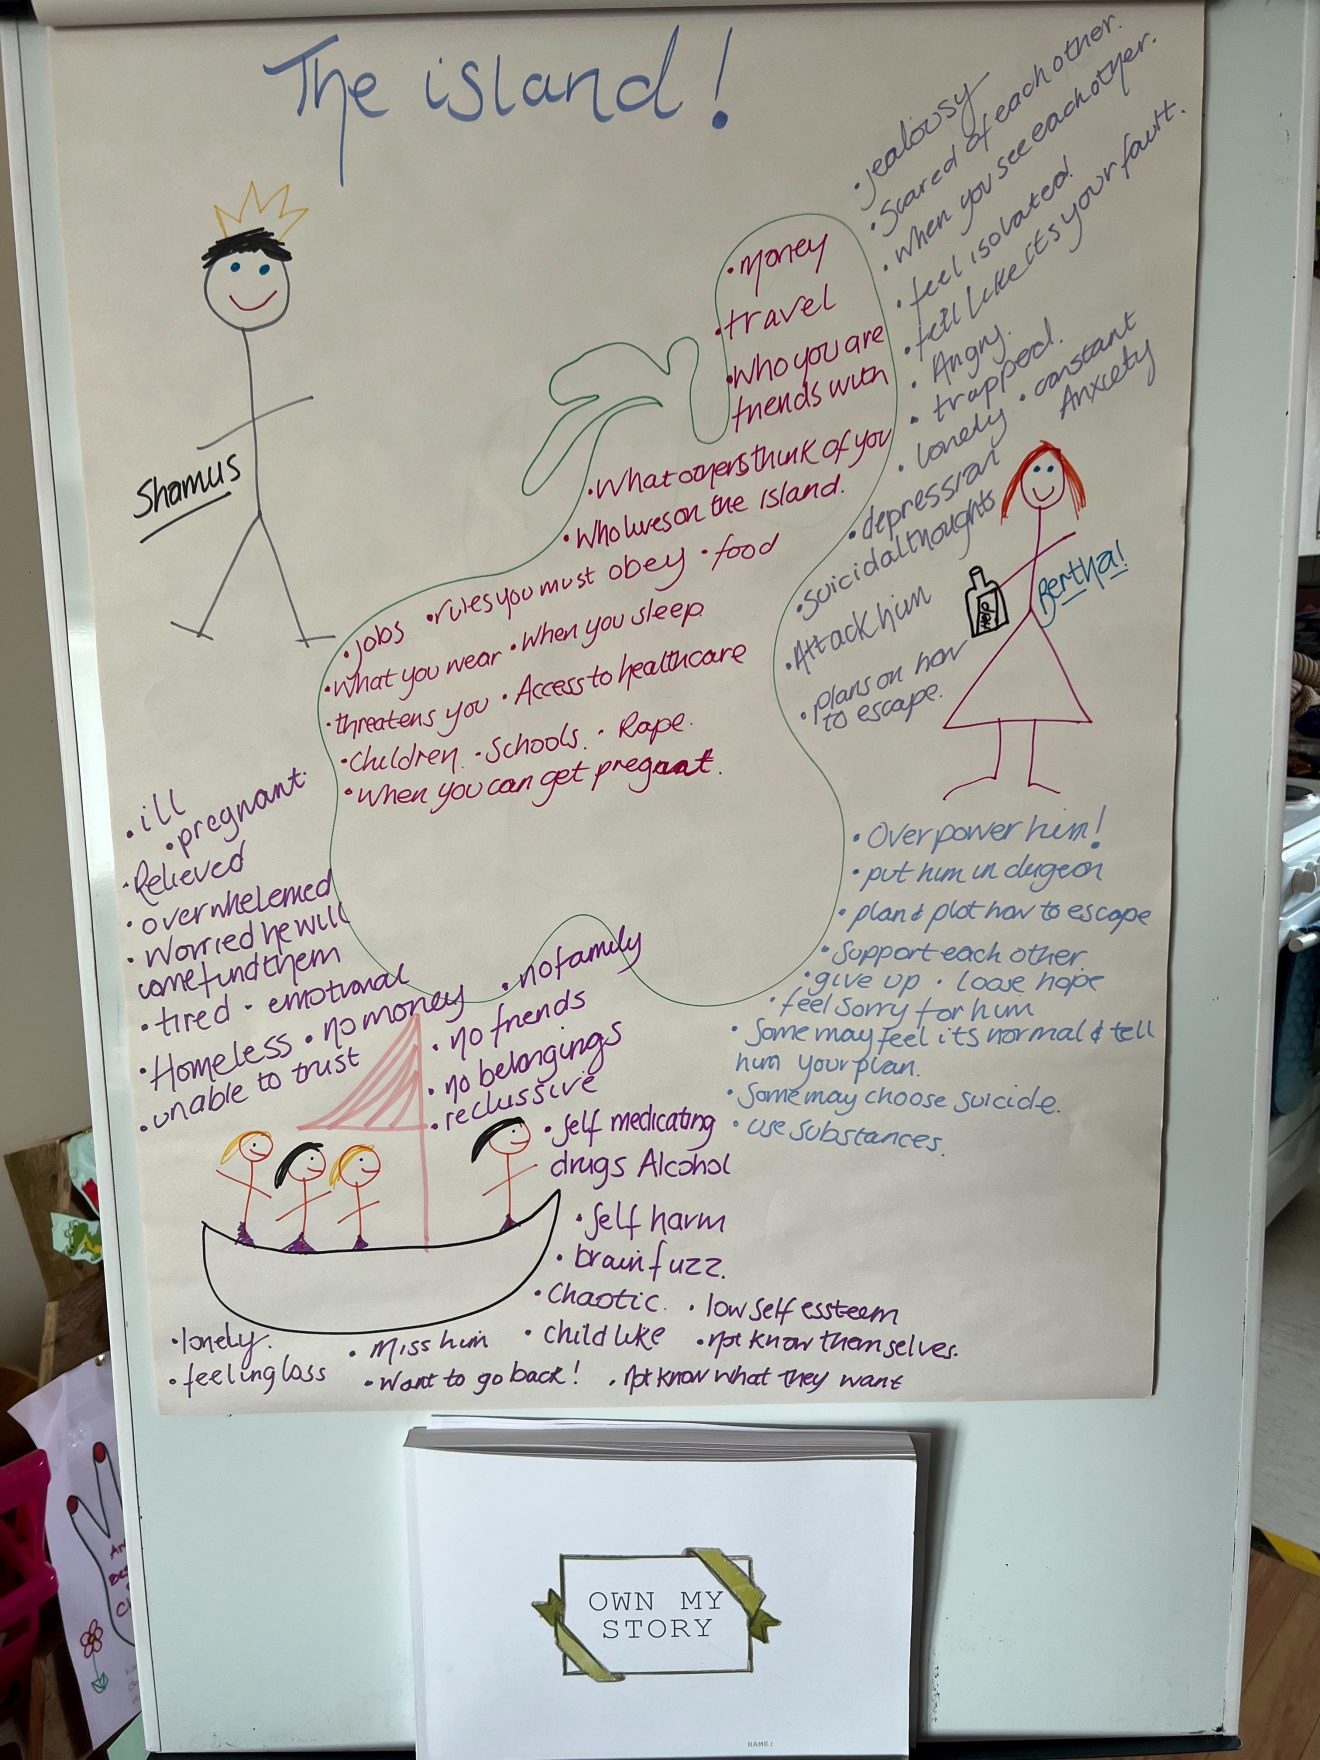 The island!
Shamus
• jealousy
• Scared of each other.
• when you see each other.
• feel isolated!
• fell like its your fault.
• Angry.
• trapped.
• lonely • constant
Anxiety
• depression
• Suicidal thoughts
• Attack him
• plans on how
to escape.
Bertha!
Help
• Money
• travel
• Who you are
friends with
• What others think of you
• Who lives on the island.
• rules you must obey • food
• jobs
• what you wear • When you sleep
• threatens you • Access to healthcare
• Children • Schools • Rape.
• When you can get pregnant.
• Overpower him!
• put him in dugeon
• plan & plot how to escape
• Support each other
• give up • loose hope
• feel sorry for him
• Some may feel its normal & tell
him your plan.
• Some may choose suicide.
• use substances.
• ill
• pregnant
• Relieved
• overwhelemed
• Worried he will
come find them
• tired • emotional
• Homeless • no money
• unable to trust
• no family
• no friends
• no belongings
• reclussive
• Self medicating
drugs Alcohol
• Self harm
• brain fuzz.
• Chaotic. • low self essteem
• child like • Not know themselves.
• lonely. • Miss him
• feeling loss • Want to go back! • Not know what they want
OWN MY
STORY
NAME: